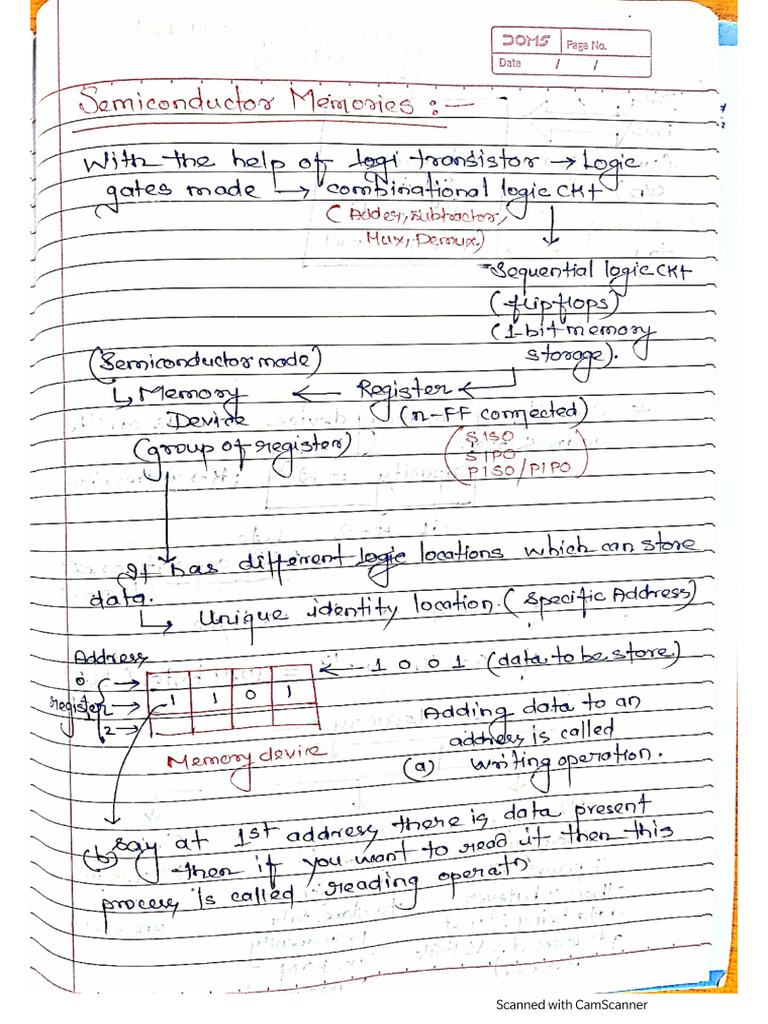 DOMS
Page No.
Date / /
Semiconductor Memories :-
With the help of logi transistor → Logic
gates made ↳ combinational logic CKT
(Adder, subtractor,
Mux, Demux.)
↓
Sequential logic CKT
(flipflops)
(1-bit memory
storage).
(Semiconductor made)
↳ Memory ← Register ←
Device (n-FF connected)
(group of register)
(SISO
SIPO
PISO/PIPO)
It has different logic locations which can store
data.
↳ Unique identity location. (Specific Address)
Address
← 1 0 0 1 (data to be store)
0 →
register 1 → 1 1 0 1
2 →
Memory device
Adding data to an
address is called
(a) writing operation.
(b) say at 1st address there is data present
then if you want to read it then this
process is called reading operatn
Scanned with CamScanner